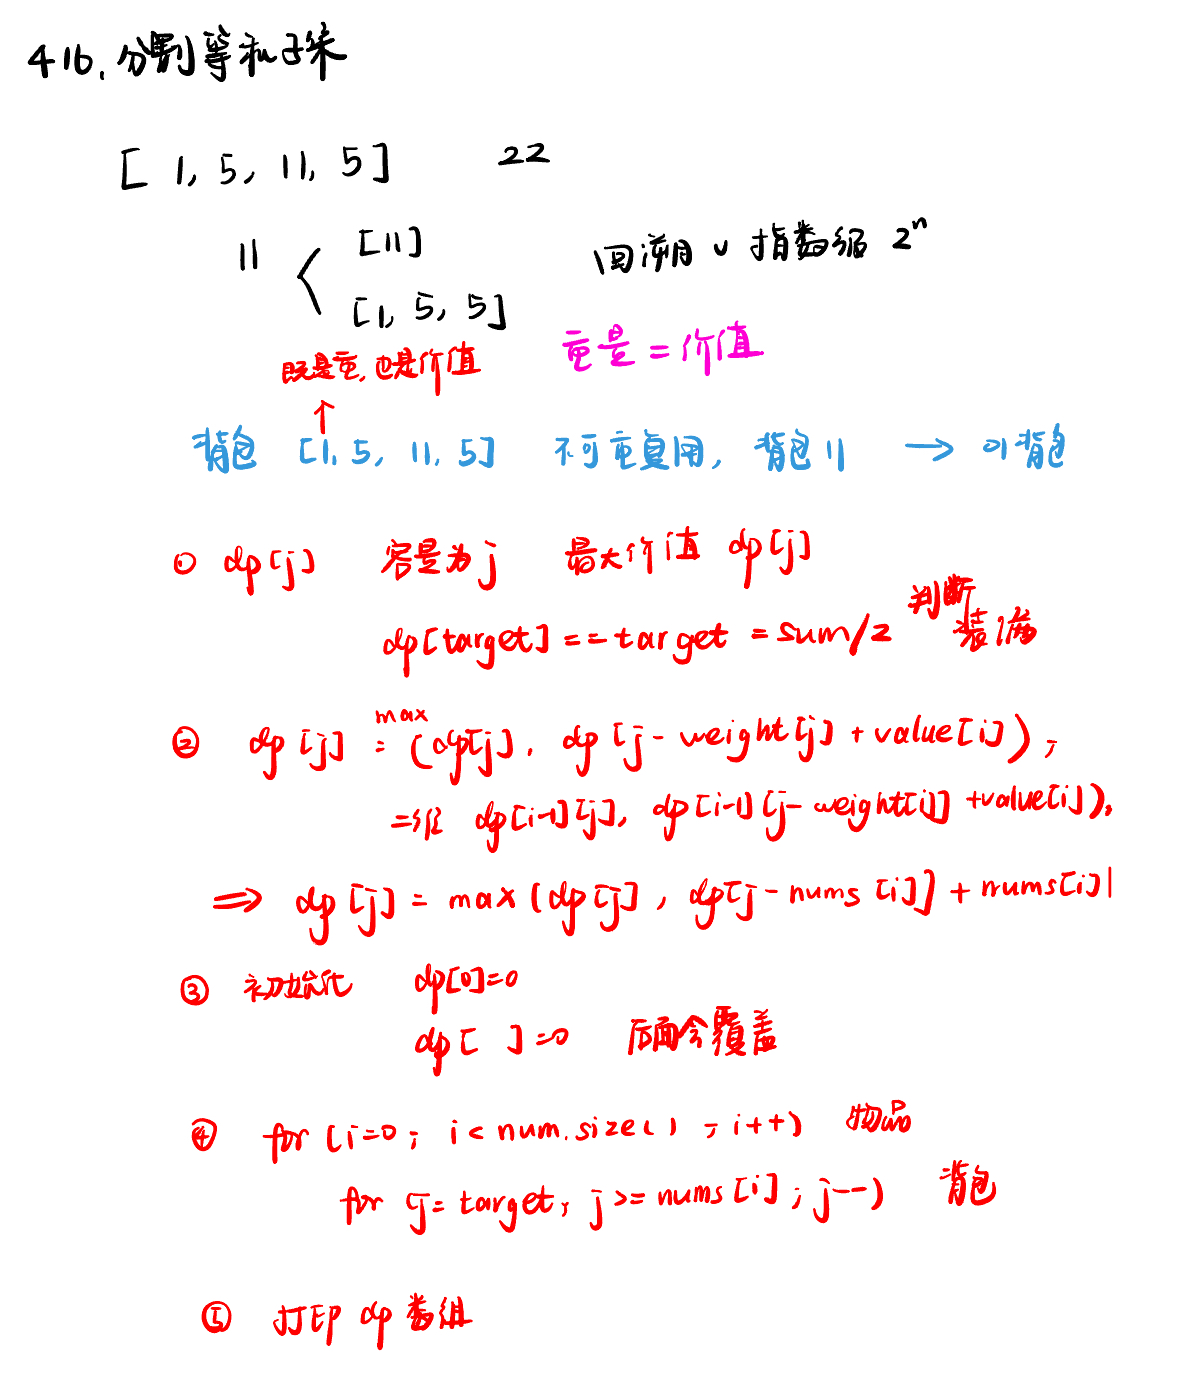 416. 分割等和子集
[ 1, 5, 11, 5 ] 22
11 < [11]
[1, 5, 5]
回溯 v 指数级 2^n
重量 = 价值
既是重, 也是价值
↑
背包 [1, 5, 11, 5] 不可重复用, 背包11 → 01背包
① dp[j] 容量为j 最大价值 dp[j]
dp[target] == target = sum/2 判断装满
② dp[j] = max(dp[j], dp[j - weight[j] + value[i]);
二维 dp[i-1][j], dp[i-1][j - weight[i]] + value[i]),
⇒ dp[j] = max(dp[j], dp[j - nums[i]] + nums[i])
③ 初始化 dp[0]=0
dp[ ]=0 后面会覆盖
④ for (i=0; i < num.size(); i++) 物品
for (j = target; j >= nums[i]; j--) 背包
⑤ 打印 dp 数组